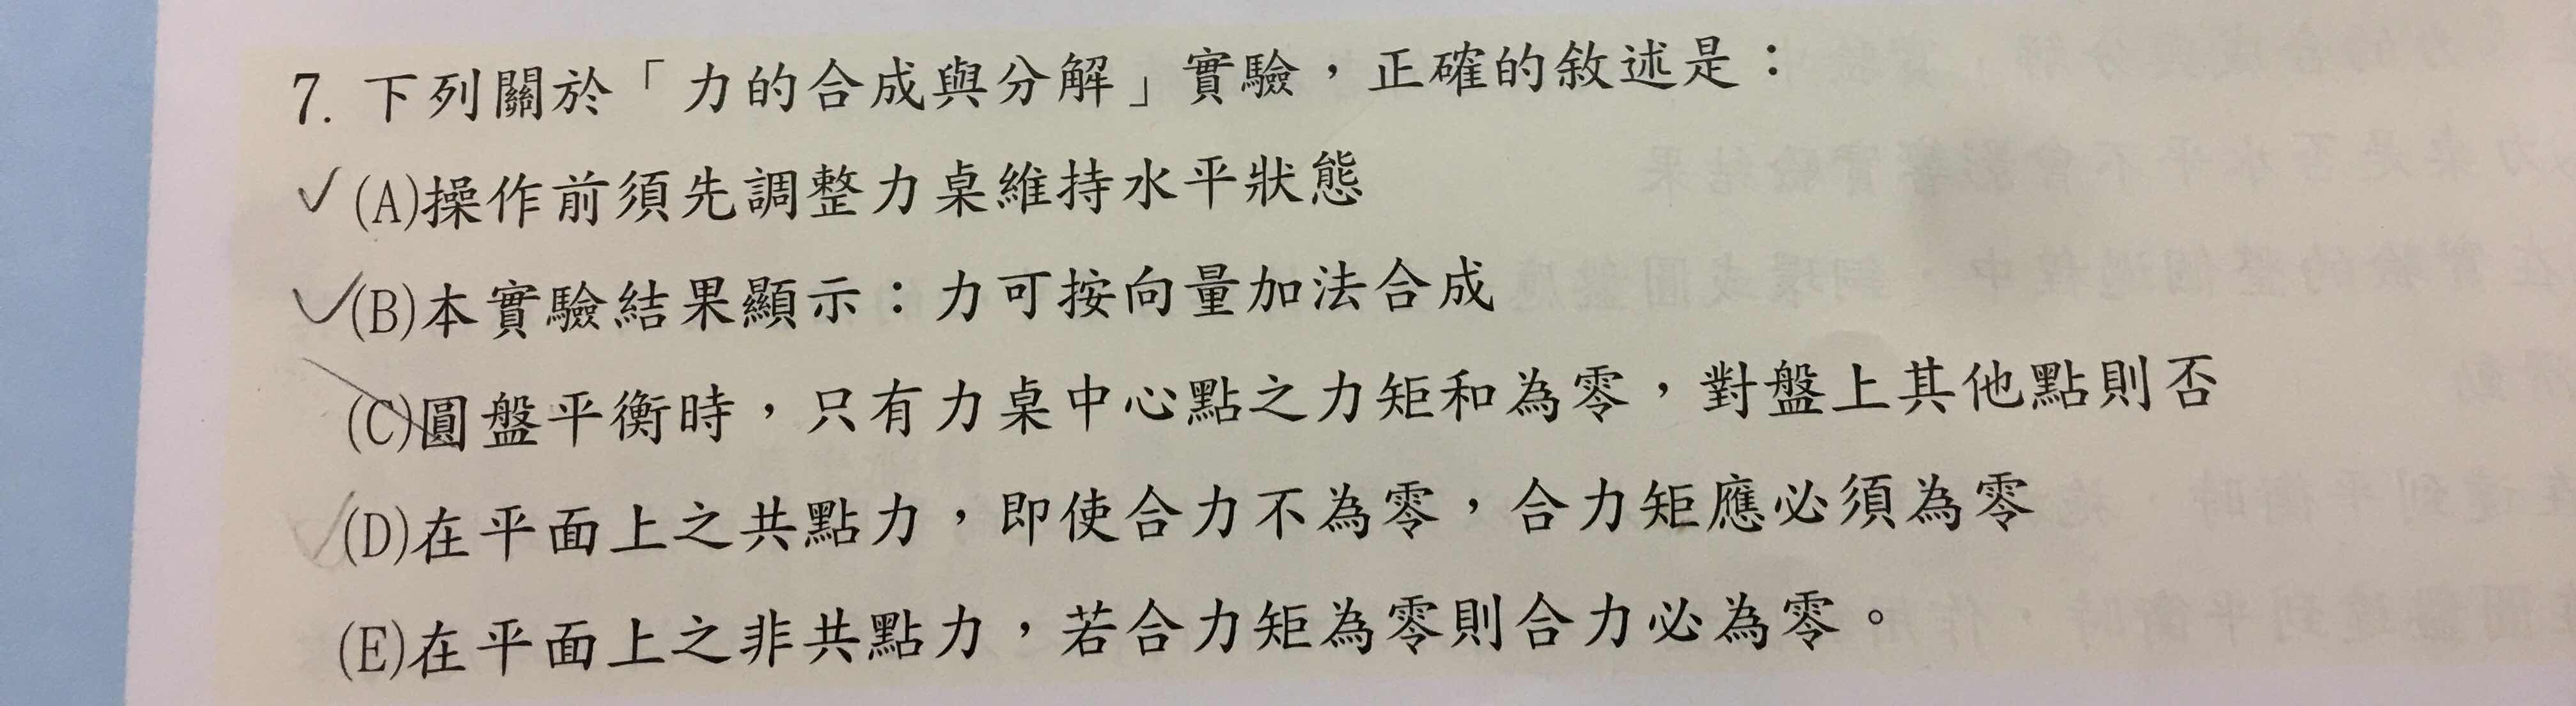 7. 下列關於「力的合成與分解」實驗，正確的敘述是：
(A)操作前須先調整力桌維持水平狀態
(B)本實驗結果顯示：力可按向量加法合成
(C)圓盤平衡時，只有力桌中心點之力矩和為零，對盤上其他點則否
(D)在平面上之共點力，即使合力不為零，合力矩應必須為零
(E)在平面上之非共點力，若合力矩為零則合力必為零。